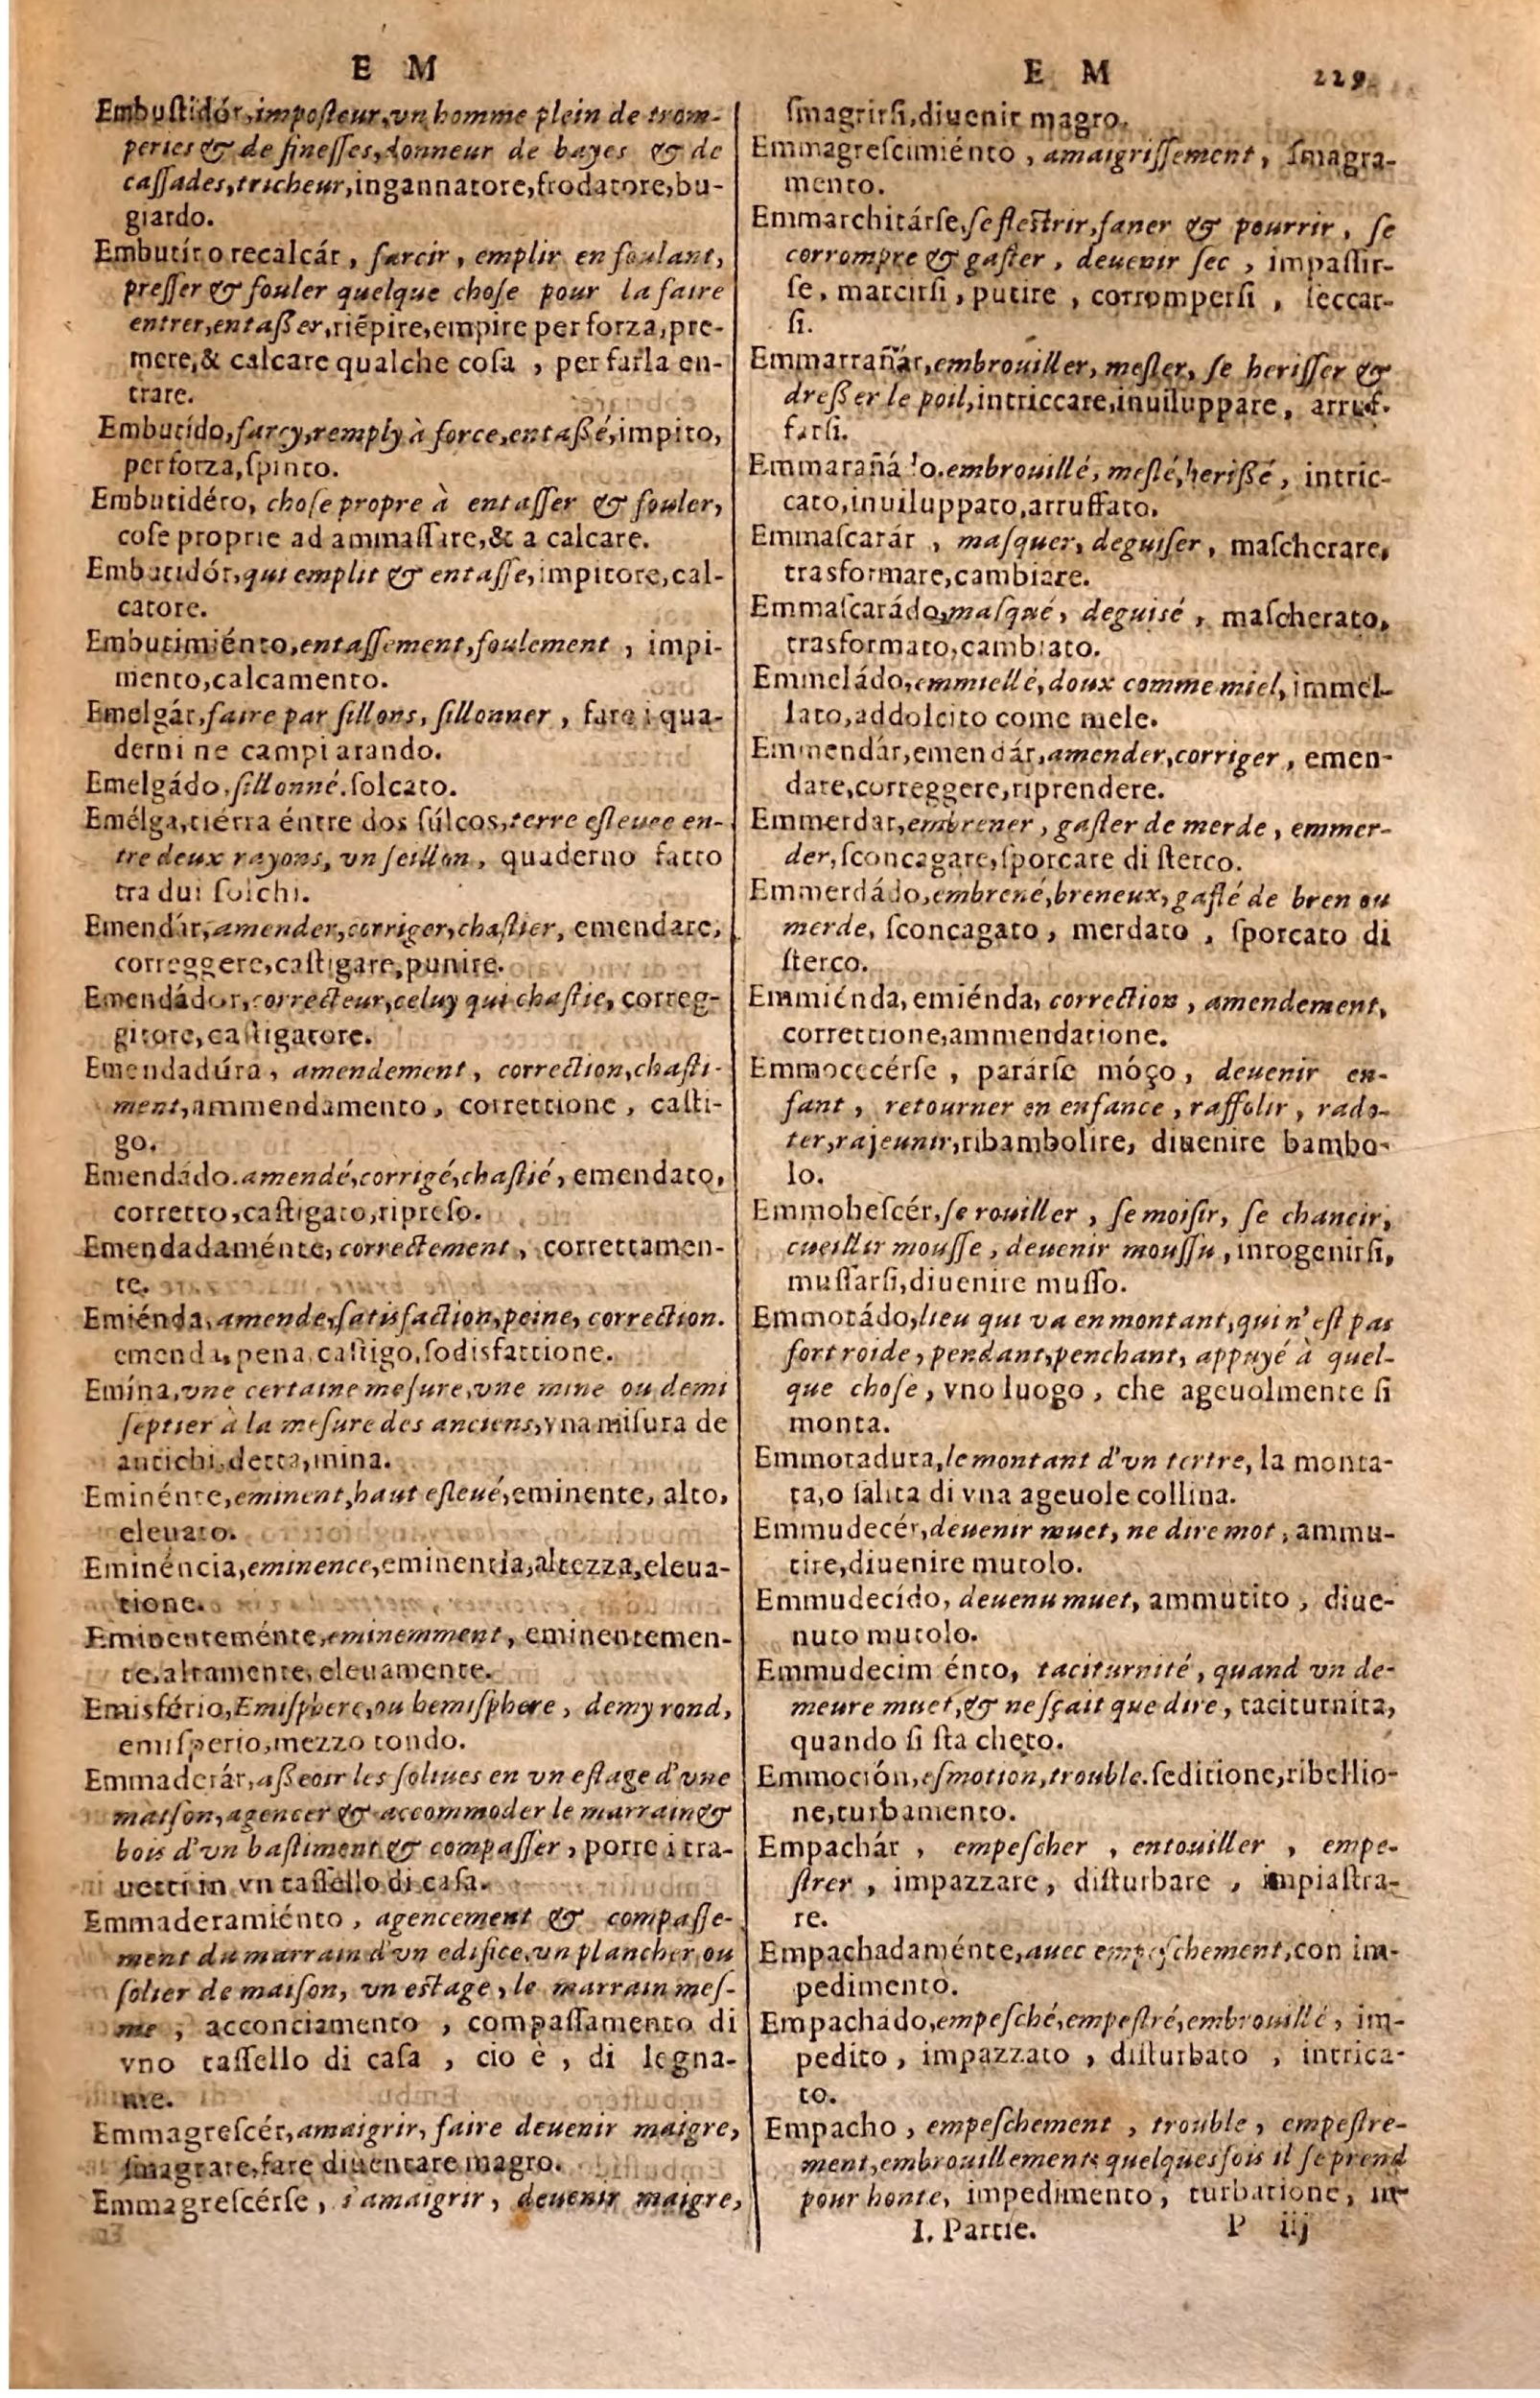 E M
Embustidór, imposteur, vn homme plein de trom-
peries & de finesses, donneur de bayes & de
cassades, tricheur, ingannatore, frodatore, bu-
giardo.
Embutír o recalcár, farcir, emplir en foulant,
presser & fouler quelque chose pour la faire
entrer, entaßer, riẽpire, empire per forza, pre-
mere, & calcare qualche cosa, per farla en-
trare.
Embutído, farcy, remply à force, entaßé, impito,
per forza, spinto.
Embutidéro, chose propre à entasser & fouler,
cose proprie ad ammassare, & a calcare.
Embutidór, qui emplit & entasse, impitore, cal-
catore.
Embutimiénto, entassement, foulement, impi-
mento, calcamento.
Emelgár, faire par sillons, sillonner, fare i qua-
derni ne campi arando.
Emelgádo, sillonné. solcato.
Emélga, tiérra éntre dos súlcos, terre esleuee en-
tre deux rayons, vn seillon, quaderno fatto
tra dui solchi.
Emendár, amender, corriger, chastier, emendare,
correggere, castigare, punire.
Emendádor, correcteur, celuy qui chastie, correg-
gitore, castigatore.
Emendadúra, amendement, correction, chasti-
ment, ammendamento, correttione, casti-
go.
Emendádo. amendé, corrigé, chastié, emendato,
corretto, castigato, ripreso.
Emendadaménte, correctement, correttamen-
te.
Emiénda, amende, satisfaction, peine, correction.
emenda, pena, castigo, sodisfattione.
Emína, vne certaine mesure, vne mine ou demi
septier à la mesure des anciens, vna misura de
antichi detta, mina.
Eminénte, eminent, haut esleué, eminente, alto,
eleuato.
Eminéncia, eminence, eminentia, altezza, eleua-
tione.
Eminenteménte, eminemment, eminentemen-
te, altamente, eleuamente.
Emisfério, Emisphere, ou hemisphere, demy rond,
emisperio, mezzo tondo.
Emmaderár, aßeoir les soliues en vn estage d'vne
maison, agencer & accommoder le marrain &
bois d'vn bastiment & compasser, porre i tra-
uetti in vn tassello di casa.
Emmaderamiénto, agencement & compasse-
ment du marrain d'vn edifice, vn plancher ou
solier de maison, vn estage, le marrain mes-
me, acconciamento, compassamento di
vno tassello di casa, cio è, di legna-
me.
Emmagrescér, amaigrir, faire deuenir maigre,
smagrare, fare diuentare magro.
Emmagrescérse, s'amaigrir, deuenir maigre,
E M 229
smagrirsi, diuenir magro.
Emmagrescimiénto, amaigrissement, smagra-
mento.
Emmarchitárse, se flestrir, faner & pourrir, se
corrompre & gaster, deuenir sec, impassir-
se, marcirsi, putire, corrompersi, seccar-
si.
Emmarrañár, embrouiller, mesler, se herisser &
dreßer le poil, intriccare, inuiluppare, arruf-
farsi.
Emmarañádo. embrouillé, meslé, herißé, intric-
cato, inuiluppato, arruffato.
Emmascarár, masquer, deguiser, mascherare,
trasformare, cambiare.
Emmascarádo, masqué, deguisé, mascherato,
trasformato, cambiato.
Emmeládo, emmiellé, doux comme miel, immel-
lato, addolcito come mele.
Emmendár, emendár, amender, corriger, emen-
dare, correggere, riprendere.
Emmerdar, embrener, gaster de merde, emmer-
der, sconcagare, sporcare di sterco.
Emmerdádo, embrené, breneux, gasté de bren ou
merde, sconcagato, merdato, sporcato di
sterco.
Emmiénda, emiénda, correction, amendement,
correttione, ammendatione.
Emmocecérse, parárse móço, deuenir en-
fant, retourner en enfance, raffolir, rado-
ter, rajeunir, ribambolire, diuenire bambo-
lo.
Emmohescér, se rouiller, se moisir, se chancir,
cueillir mousse, deuenir moussu, inrogenirsi,
mussarsi, diuenire musso.
Emmotádo, lieu qui va en montant, qui n'est pas
fort roide, pendant, penchant, appuyé à quel-
que chose, vno luogo, che ageuolmente si
monta.
Emmotadura, le montant d'vn tertre, la monta-
ta, o salita di vna ageuole collina.
Emmudecér, deuenir muet, ne dire mot, ammu-
tire, diuenire mutolo.
Emmudecído, deuenu muet, ammutito, diue-
nuto mutolo.
Emmudecim énto, taciturnité, quand vn de-
meure muet, & ne sçait que dire, taciturnita,
quando si sta cheto.
Emmoción, esmotion, trouble. seditione, ribellio-
ne, turbamento.
Empachár, empescher, entouiller, empe-
strer, impazzare, disturbare, impiastra-
re.
Empachadaménte, auec empeschement, con im-
pedimento.
Empachádo, empesché, empestré, embrouillé, im-
pedito, impazzato, disturbato, intrica-
to.
Empacho, empeschement, trouble, empestre-
ment, embrouillement, quelquesfois il se prend
pour honte, impedimento, turbatione, in-
I. Partie. P iij